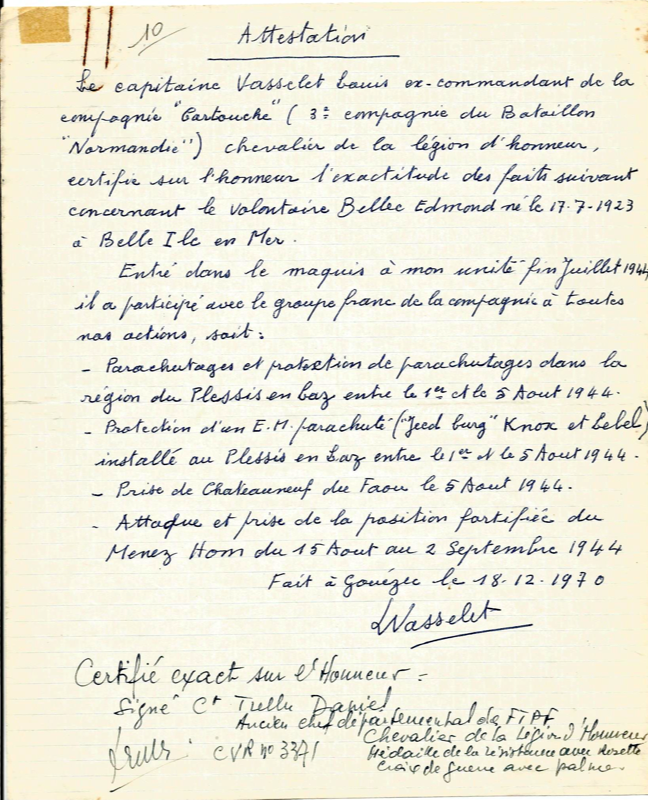 10
Attestation
Le capitaine Vasselet Louis ex-commandant de la
compagnie "Cartouche" ( 3e compagnie du Bataillon
"Normandie") chevalier de la légion d'honneur,
certifie sur l'honneur l'exactitude des faits suivant
concernant le volontaire Bellec Edmond né le 17.7.1923
à Belle Ile en Mer.
Entré dans le maquis à mon unité fin Juillet 1944
il a participé avec le groupe franc de la compagnie à toutes
nos actions, soit :
- Parachutages et protection de parachutages dans la
région du Plessis en Laz entre le 1er et le 5 Aout 1944.
- Protection d'un E.M. parachuté ("Jeed burg" Knox et Lebel)
installé au Plessis en Laz entre le 1er et le 5 Aout 1944.
- Prise de Chateauneuf du Faou le 5 Aout 1944.
- Attaque et prise de la position fortifiée du
Menez Hom du 15 Aout au 2 Septembre 1944
Fait à Gouézec le 18.12.1970
LVasselet
Certifié exact sur l'Honneur =
Signé Ct Trellu Daniel
Ancien chef départemental des FTPF
Chevalier de la Légion d'Honneur
Médaille de la résistance avec Rosette
Croix de guerre avec palmes
CVR no 3371